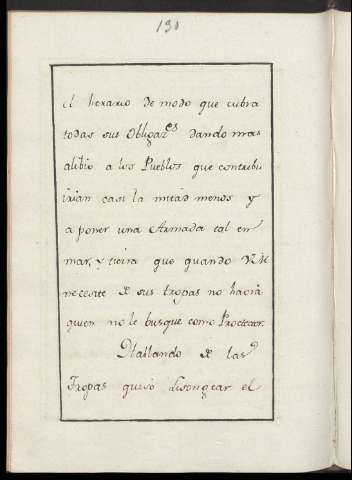 130
el herario de modo que cubra
todas sus Obligaz.es dando mas
alibio a los Pueblos que contribu
irian casi la mitad menos y
a poner una Armada tal en
mar, y tierra que quando VM
necesite de sus tropas no havrà
quien no le busque como Protector.
Hallando de las
Tropas quiso Lisongear el